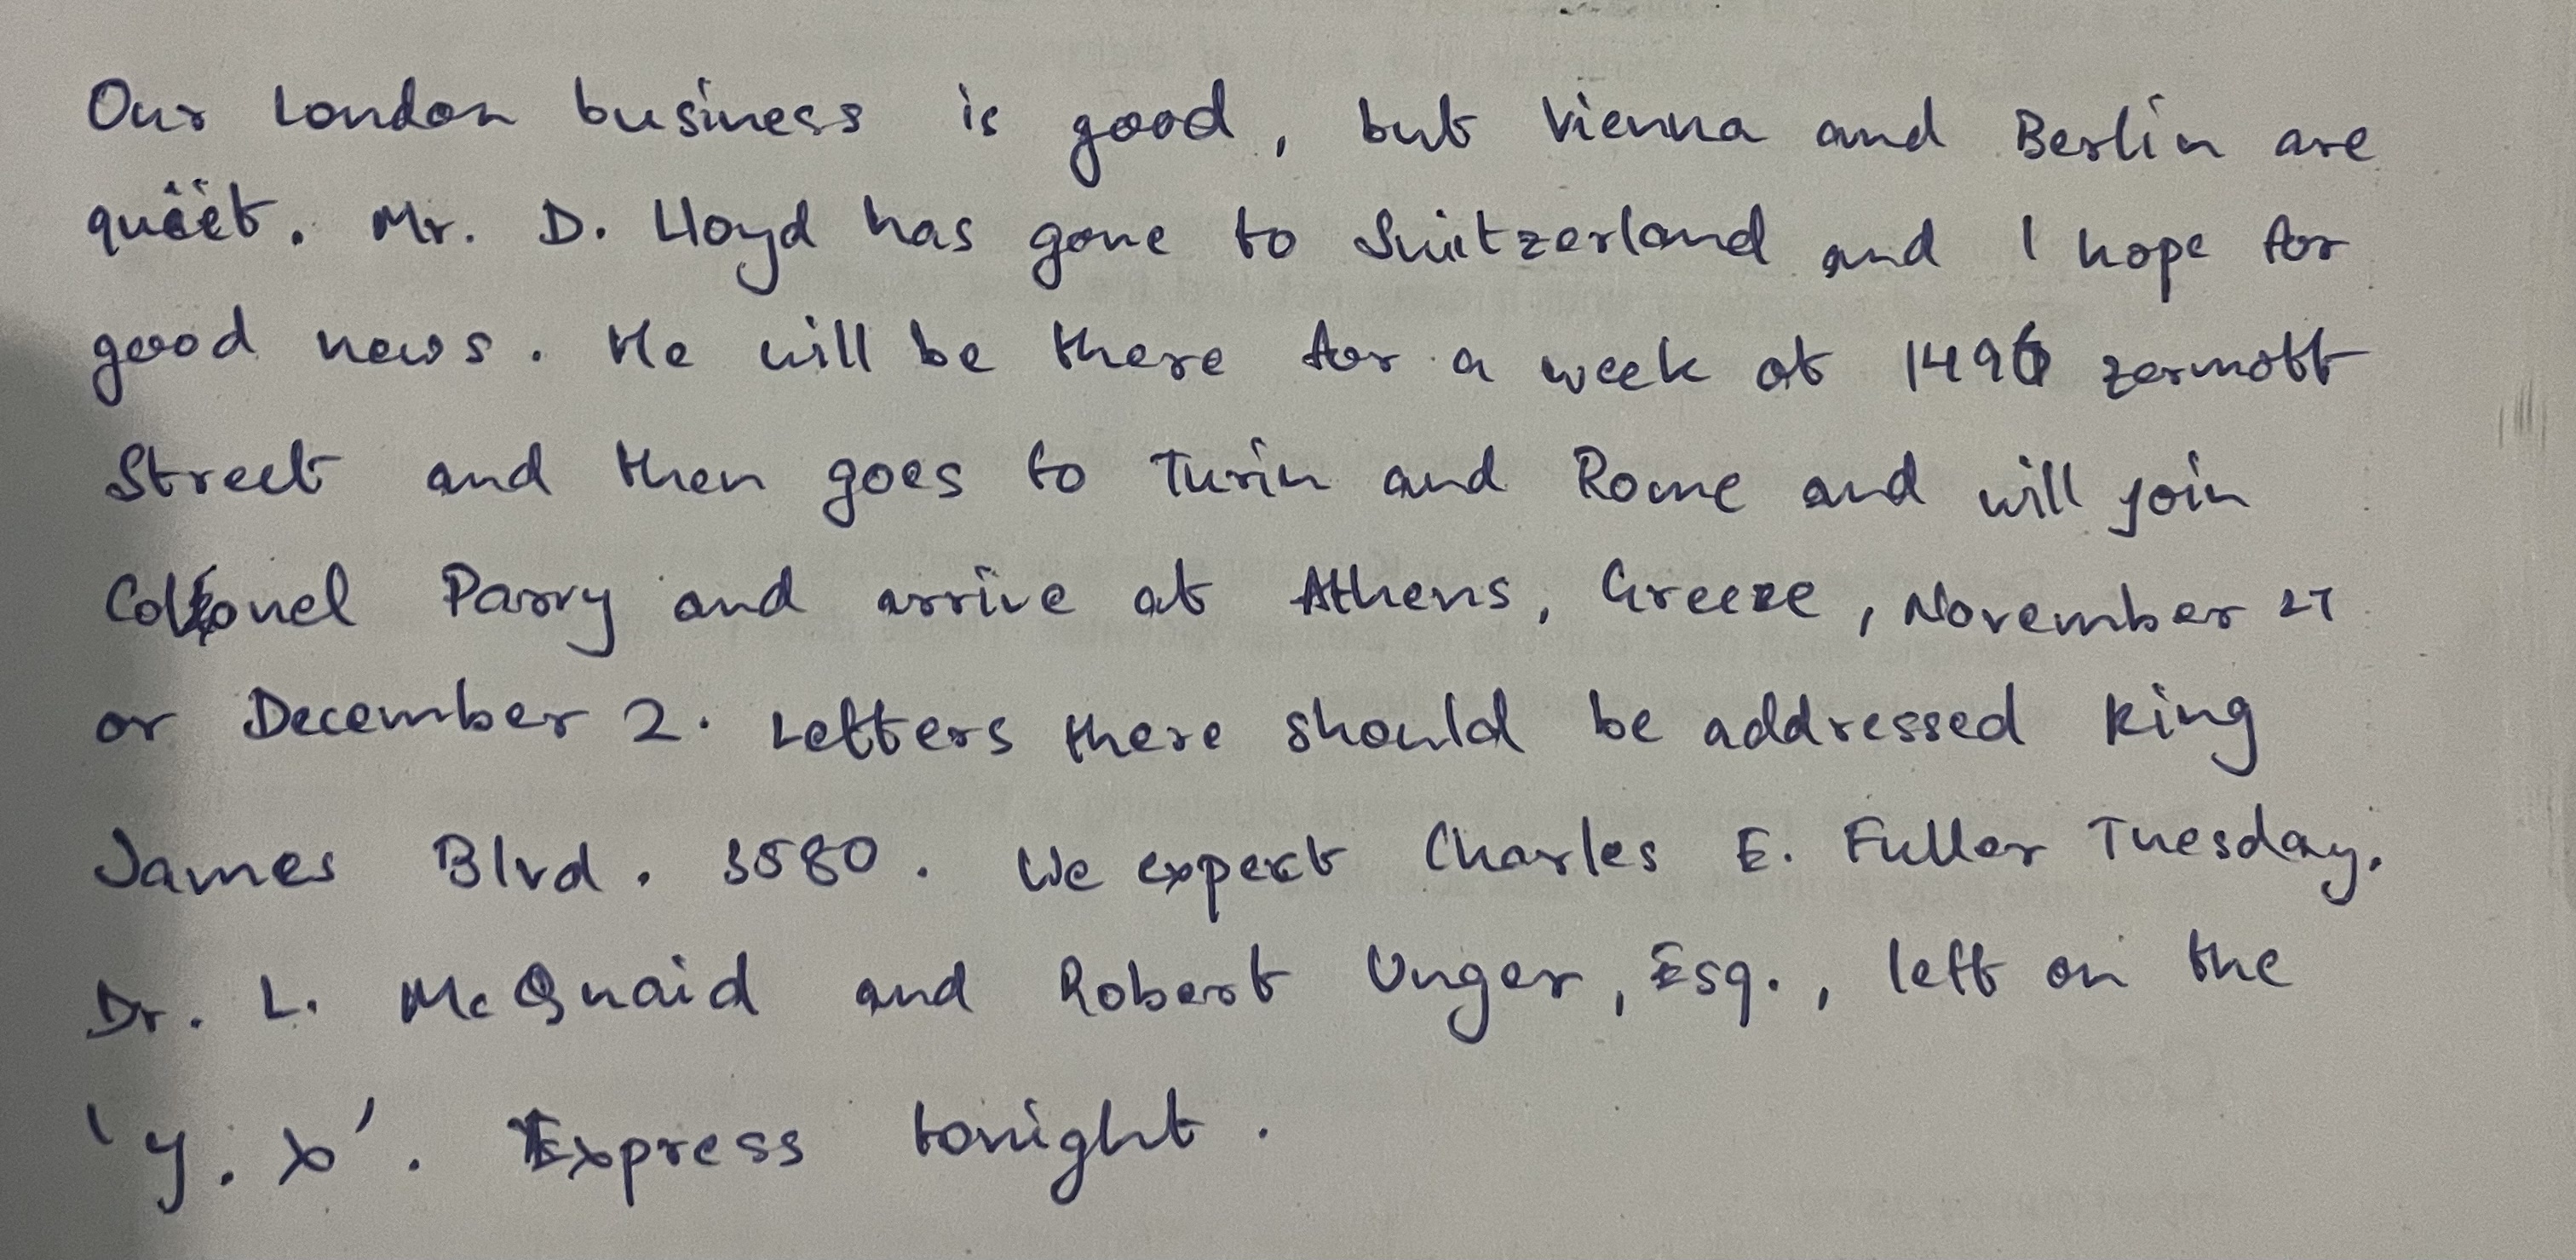 Our London business is good, but Vienna and Berlin are
quiet. Mr. D. Lloyd has gone to Switzerland and I hope for
good news. He will be there for a week at 1496 Zermott
Street and then goes to Turin and Rome and will join
Colonel Parry and arrive at Athens, Greece, November 27
or December 2. Letters there should be addressed King
James Blvd. 3580. We expect Charles E. Fuller Tuesday.
Dr. L. McQuaid and Robert Unger, Esq., left on the
'Y. X'. Express tonight.